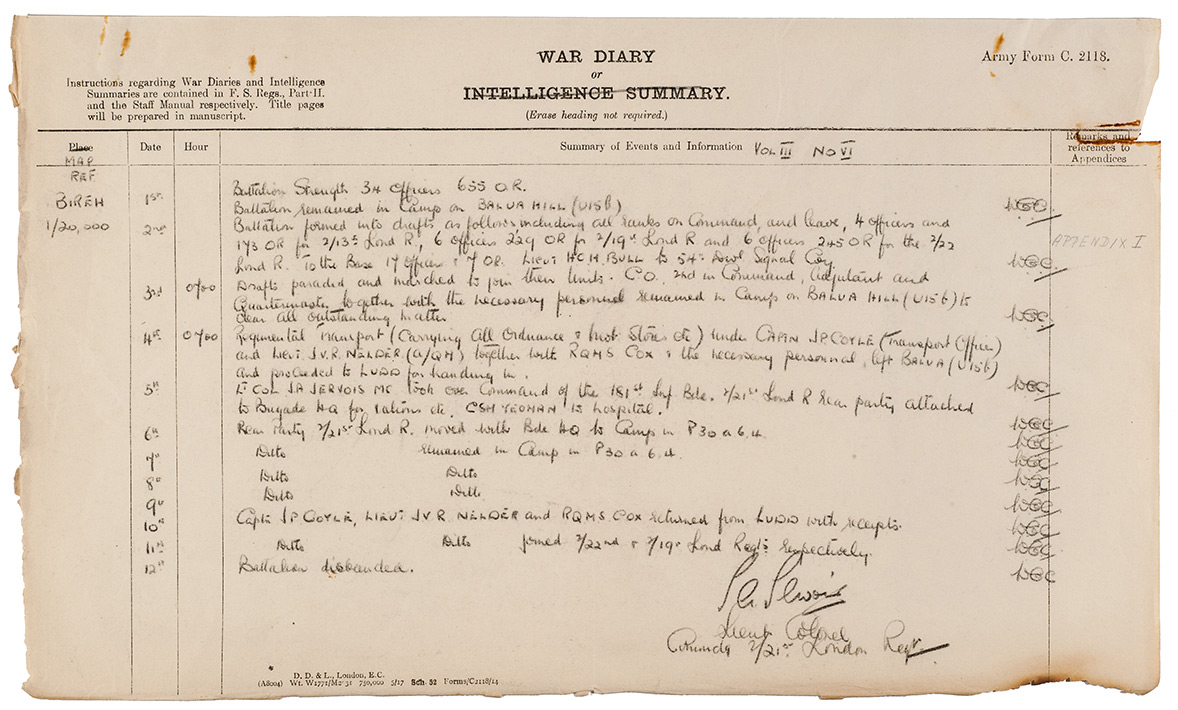 WAR DIARY
or
INTELLIGENCE SUMMARY.
(Erase heading not required.)
Army Form C. 2118.
Instructions regarding War Diaries and Intelligence
Summaries are contained in F. S. Regs., Part II.
and the Staff Manual respectively. Title pages
will be prepared in manuscript.
Place Date Hour Summary of Events and Information VOL III NO VI Remarks and
references to
Appendices
MAP
REF
BIREH
1/20,000
1st Battalion Strength 34 Officers 655 O.R.
Battalion remained in Camp on BALUA HILL (U15b)
2nd Battalion formed into drafts as follows including all ranks on Command, and leave, 4 officers and
173 OR for 2/13th Lond R, 6 Officers 229 OR for 2/19th Lond R and 6 officers 245 OR for the 2/22
Lond R. To the Base 17 Officers & 7 OR. Lieut H.C.H. BULL to 54th Signal Coy APPENDIX I
3rd 0700 Drafts paraded and marched to join their Units. C.O. 2nd in Command, Adjutant and
Quartermaster together with the necessary personnel remained in Camp on BALUA HILL (U15b) to
clear all outstanding matter
4th 0700 Regimental Transport (Carrying All Ordnance & Stores etc) under CAPTN J.P. COYLE (Transport Officer)
and Lieut J.V.R. NELDER (a/QM) together with RQMS COX & the necessary personnel, left BALUA (U15b)
and proceeded to LUDD for handing in.
5th Lt COL J.A. JERVOIS MC. took over Command of the 181st Inf. Bde. 2/21st Lond R Rear party attached
to Brigade HQ for rations etc. CSM YEOMAN to hospital.
6th Rear Party 2/21st Lond R. moved with Bde HQ to Camp in P30 a 6.4
7th Ditto remained in Camp in P30 a 6.4.
8th Ditto Ditto
9th Ditto Ditto
10th Captn J.P. COYLE, LIEUT J.V.R. NELDER and RQMS COX returned from LUDD with receipts.
11th Ditto Ditto joined 2/22nd & 2/19th Lond Regts respectively.
12th Battalion disbanded.
Lieut Colonel
Commdg 2/21st London Regt.
D. D. & L., London, E.C.
(A8004) Wt. W1771/M2 31 750,000 5/17 Sch. 52 Forms/C2118/14